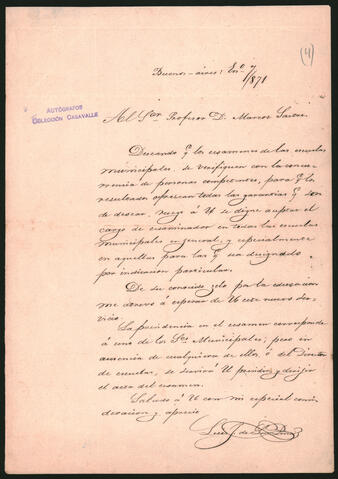 (4)
Buenos-aires: En.º 7
/1871
AUTÓGRAFOS
COLECCIÓN CASAVALLE
Al Sor. Profesor D. Marcos Sastre.
Deseando q. los exsamenes de las escuelas
municipales, se verifiquen con la concu-
rrencia de personas competentes, para q. los
resultados ofrezcan todas las garantías q. son
de desear, ruego á U se digne aceptar el
cargo de examinador en todas las escuelas
municipales en general, y especialmente
en aquellas para las q. sea designado
por indicacion particular.
De su conocido zelo por la educacion
me atrevo á esperar de U este nuevo ser-
vicio.
La presidencia en el exsamen corresponde
á uno de los Sres. Municipales, pero en
ausencia de cualquiera de ellos, ó del Director
de escuelas, se servirá U presidir y dirijir
el acto del exsamen.
Saludo á U con mi especial consi-
deracion y aprecio
Luis J. de la Peña